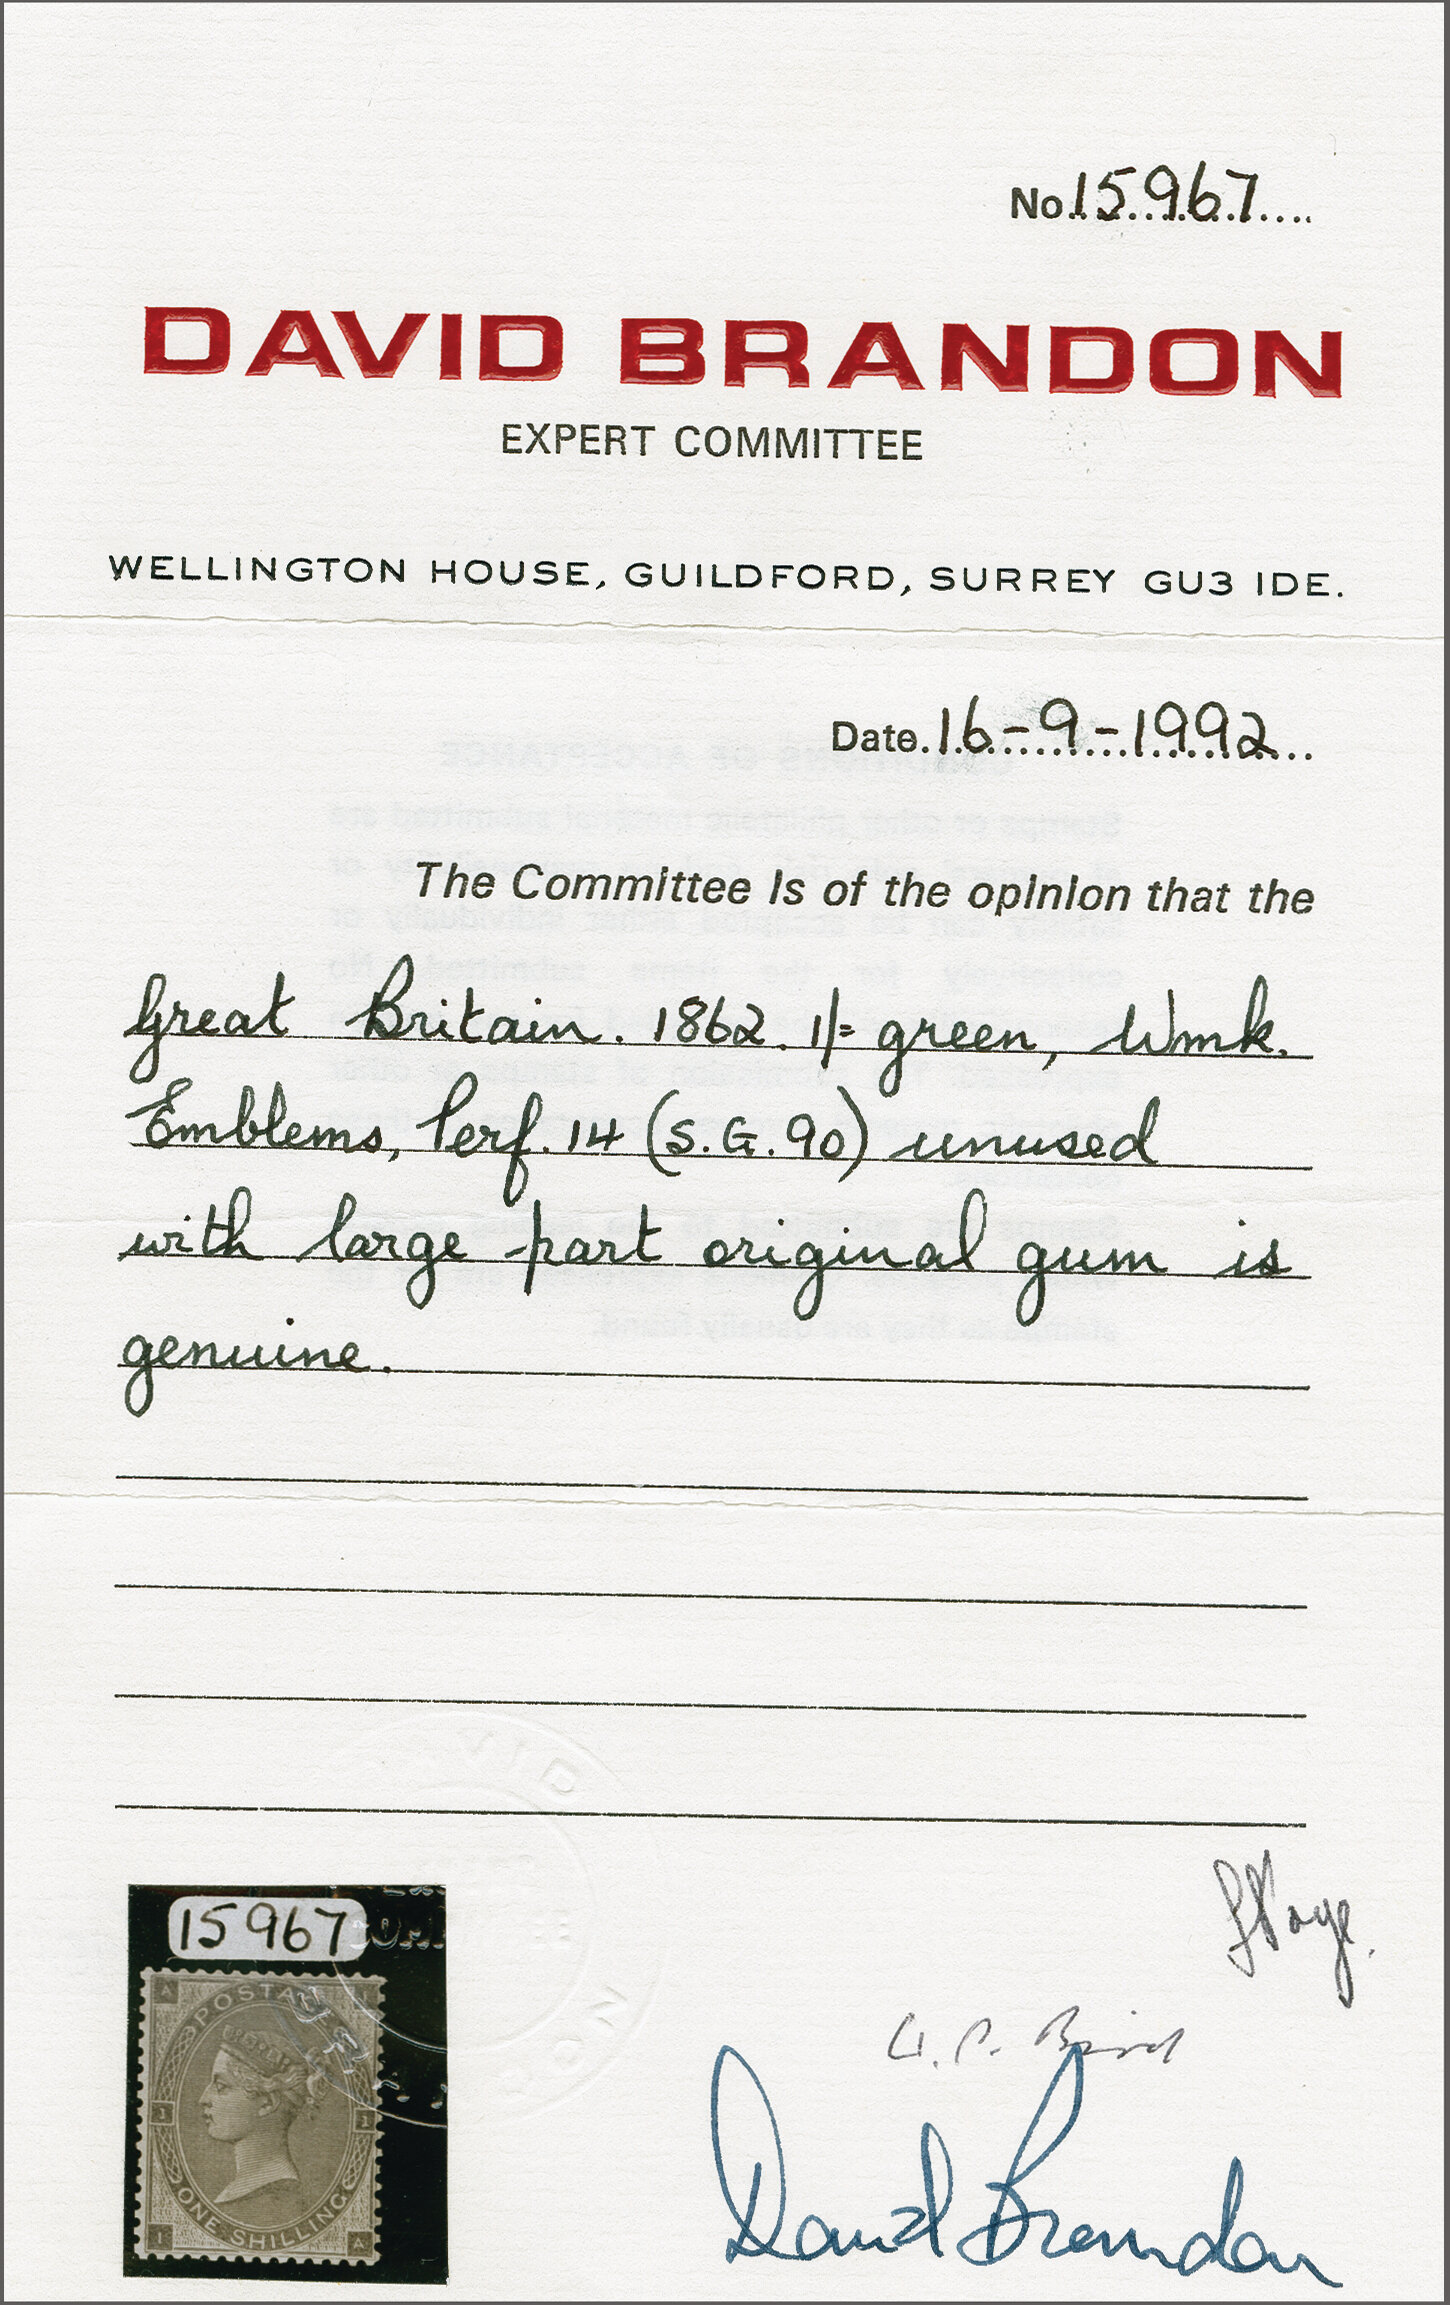 No. 15967
DAVID BRANDON
EXPERT COMMITTEE
WELLINGTON HOUSE, GUILDFORD, SURREY GU3 1DE.
Date. 16-9-1992
The Committee is of the opinion that the
Great Britain. 1862. 1/= green, Wmk.
Emblems, Perf. 14 (S.G. 90) unused
with large part original gum is
genuine.
15967
A I
POSTAGE
1 1
ONE SHILLING
I A
David Brandon